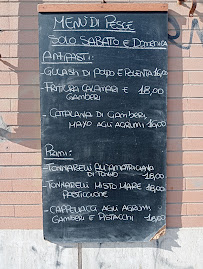 MENÙ DI PESCE
SOLO SABATO E DOMENICA
ANTIPASTI:
GULASH DI POLPO E POLENTA 16,00
- FRITTURA CALAMARI E 18,00
GAMBERI
- CATALANA DI GAMBERI,
MAYO AGLI AGRUMI 16,00
PRIMI:
- TONNARELLI ALL'AMATRICIANA
DI TONNO 15,00
- TONNARELLI MISTO MARE 18,00
PASTICCIONE
- CAPPELLACCI AGLI AGRUMI,
GAMBERI E PISTACCHI 16,00